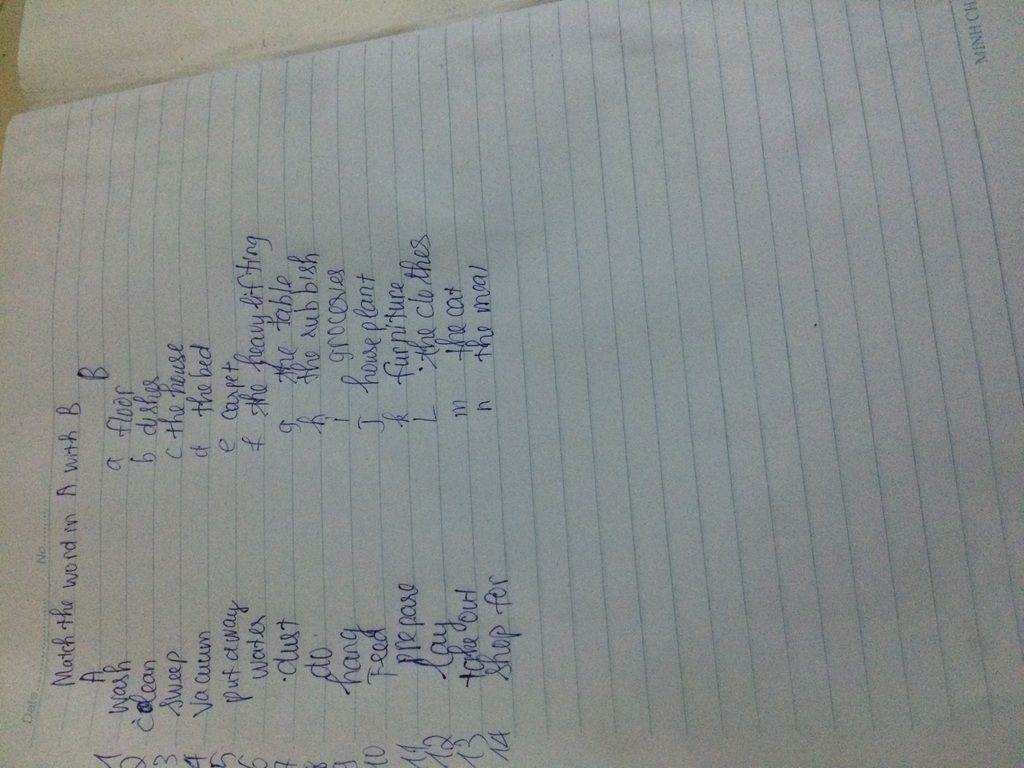 Date ............ No ............
Match the word in A with B
A B
1 wash a floor
2 clean b dishes
3 sweep c the house
4 Vacuum d the bed
5 put away e carpet
6 water f the heavy lifting
7 dust g the table
8 do h the rubbish
9 hang i groceries
10 Feed J house plant
11 prepare k furniture
12 lay L the clothes
13 take out m the cat
14 Shop for n the meal
MINH CH